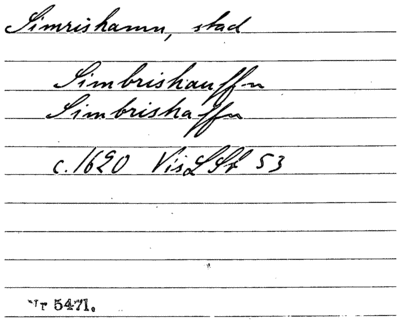 Simrishamn, stad
Simbrishauffn
Simbrishaffn
c. 1620 Vis LSt 53
Nr 5471.